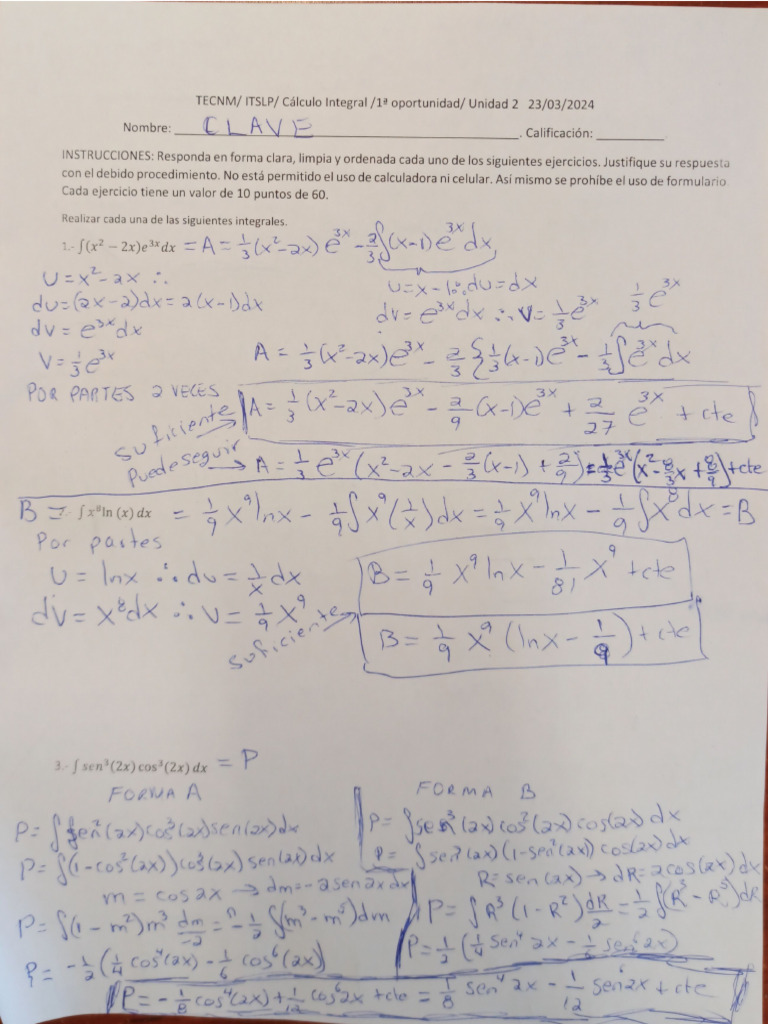 TECNM/ ITSLP/ Cálculo Integral /1ª oportunidad/ Unidad 2 23/03/2024
Nombre: CLAVE . Calificación:
INSTRUCCIONES: Responda en forma clara, limpia y ordenada cada uno de los siguientes ejercicios. Justifique su respuesta
con el debido procedimiento. No está permitido el uso de calculadora ni celular. Así mismo se prohíbe el uso de formulario
Cada ejercicio tiene un valor de 10 puntos de 60.
Realizar cada una de las siguientes integrales.
1.- ∫(x² − 2x)e³ˣdx = A = 1/3 (x²-2x) e³ˣ - 2/3 ∫(x-1) e³ˣ dx
U = x²-2x ∴
du = (2x-2)dx = 2(x-1)dx
dv = e³ˣ dx
V = 1/3 e³ˣ
u = x-1 ∴ du = dx
dv = e³ˣ dx ∴ V = 1/3 e³ˣ
1/3 e³ˣ
A = 1/3 (x²-2x) e³ˣ - 2/3 { 1/3 (x-1) e³ˣ - 1/3 ∫ e³ˣ dx
POR PARTES 2 VECES
suficiente A = 1/3 (x²-2x) e³ˣ - 2/9 (x-1) e³ˣ + 2/27 e³ˣ + cte
Puede seguir → A = 1/3 e³ˣ (x²-2x - 2/3 (x-1) + 2/9) = 1/3 e³ˣ (x² - 8/3 x + 8/9) + cte
B = ∫ x⁸ ln (x) dx = 1/9 x⁹ lnx - 1/9 ∫ x⁹ (1/x) dx = 1/9 x⁹ lnx - 1/9 ∫ x⁸ dx = B
Por partes
U = lnx ∴ du = 1/x dx
dv = x⁸ dx ∴ v = 1/9 x⁹
B = 1/9 x⁹ lnx - 1/81 x⁹ + cte
suficiente
B = 1/9 x⁹ (lnx - 1/9) + cte
3.- ∫ sen³(2x) cos³(2x) dx = P
FORMA A
P = ∫ sen²(2x) cos³(2x) sen(2x) dx
P = ∫ (1-cos²(2x)) cos³(2x) sen(2x) dx
m = cos 2x → dm = -2 sen 2x dx
P = ∫ (1 - m²) m³ dm/-2 = -1/2 ∫ (m³ - m⁵) dm
P = -1/2 (1/4 cos⁴(2x) - 1/6 cos⁶(2x))
FORMA B
P = ∫ sen³(2x) cos²(2x) cos(2x) dx
P = ∫ sen³(2x) (1-sen²(2x)) cos(2x) dx
R = sen(2x) → dR = 2cos(2x) dx
P = ∫ R³ (1 - R²) dR/2 = 1/2 ∫ (R³ - R⁵) dR
P = 1/2 (1/4 sen⁴ 2x - 1/6 sen⁶ 2x)
P = - 1/8 cos⁴(2x) + 1/12 cos⁶ 2x + cte = 1/8 sen⁴ 2x - 1/12 sen⁶ 2x + cte